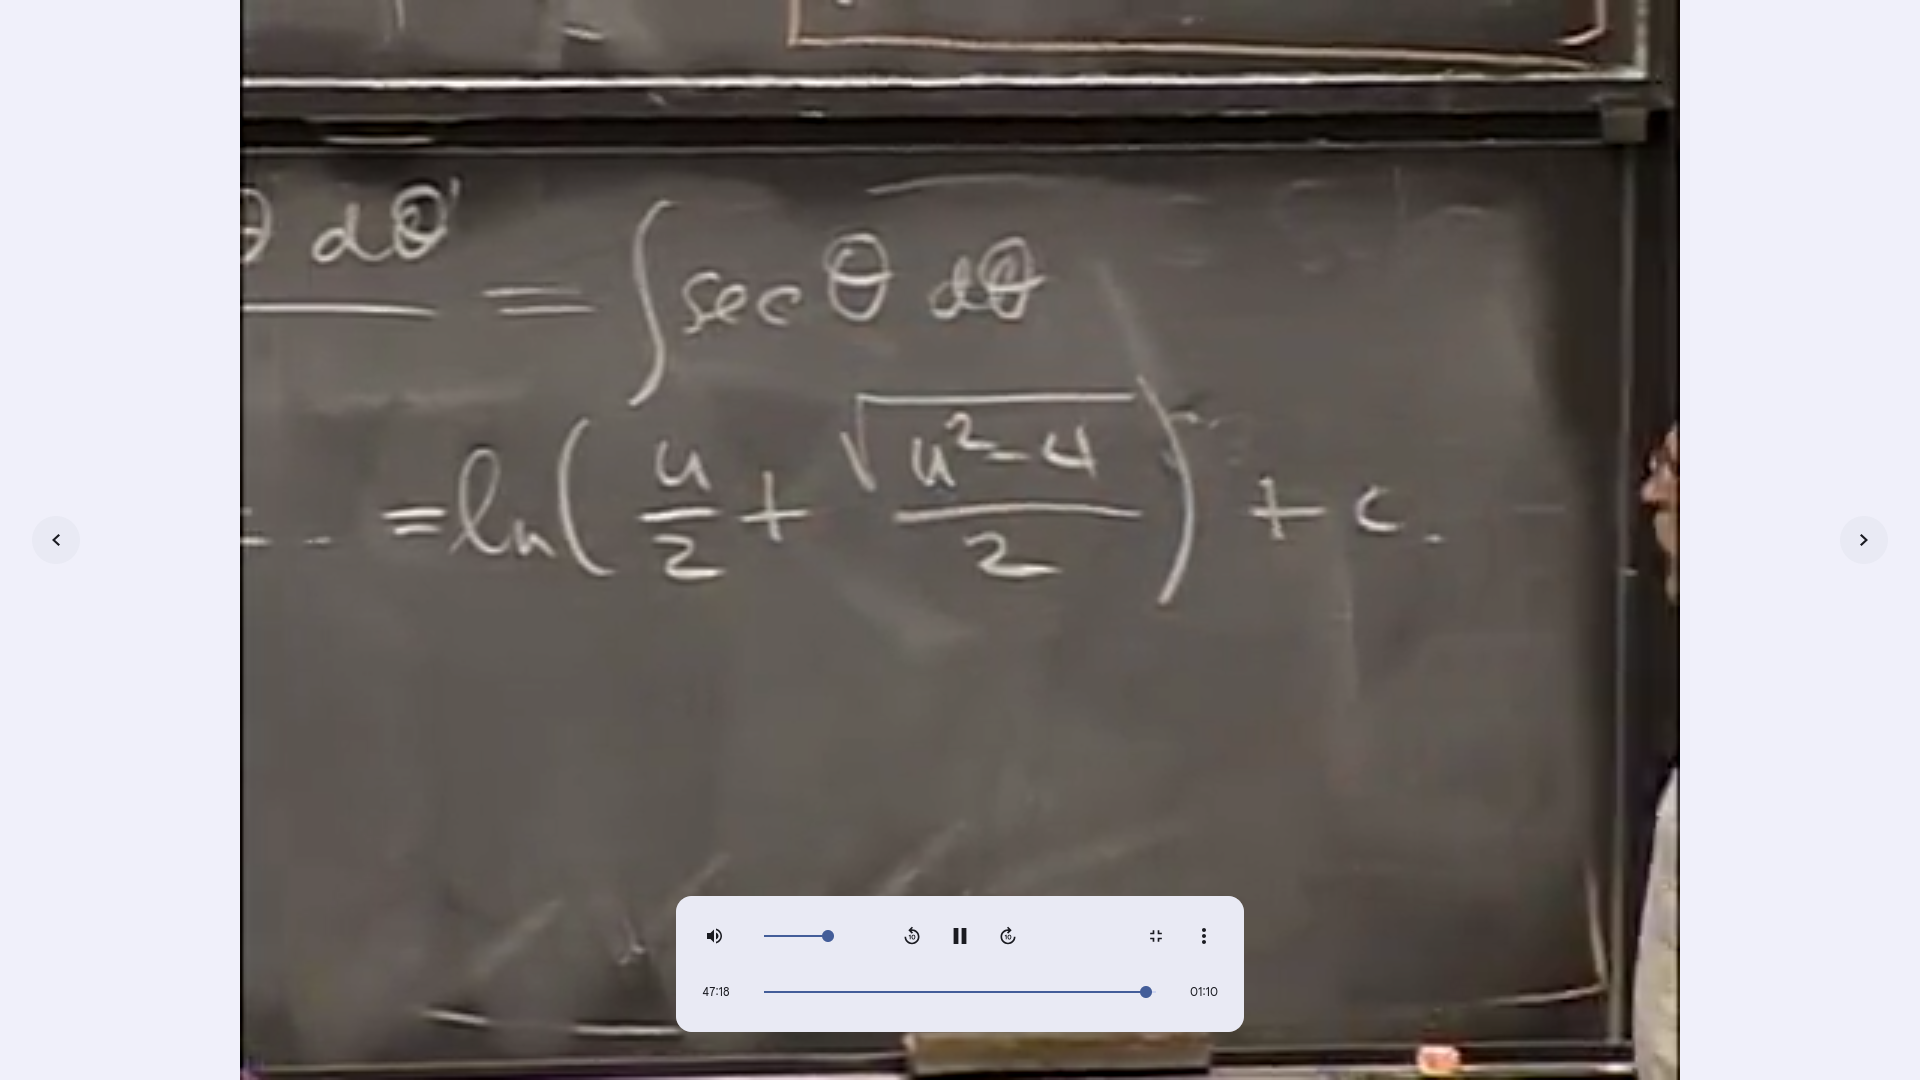 θ dθ = ∫ sec θ dθ
= ln( u/2 + √(u²-4)/2 ) + c.
47:18 01:10